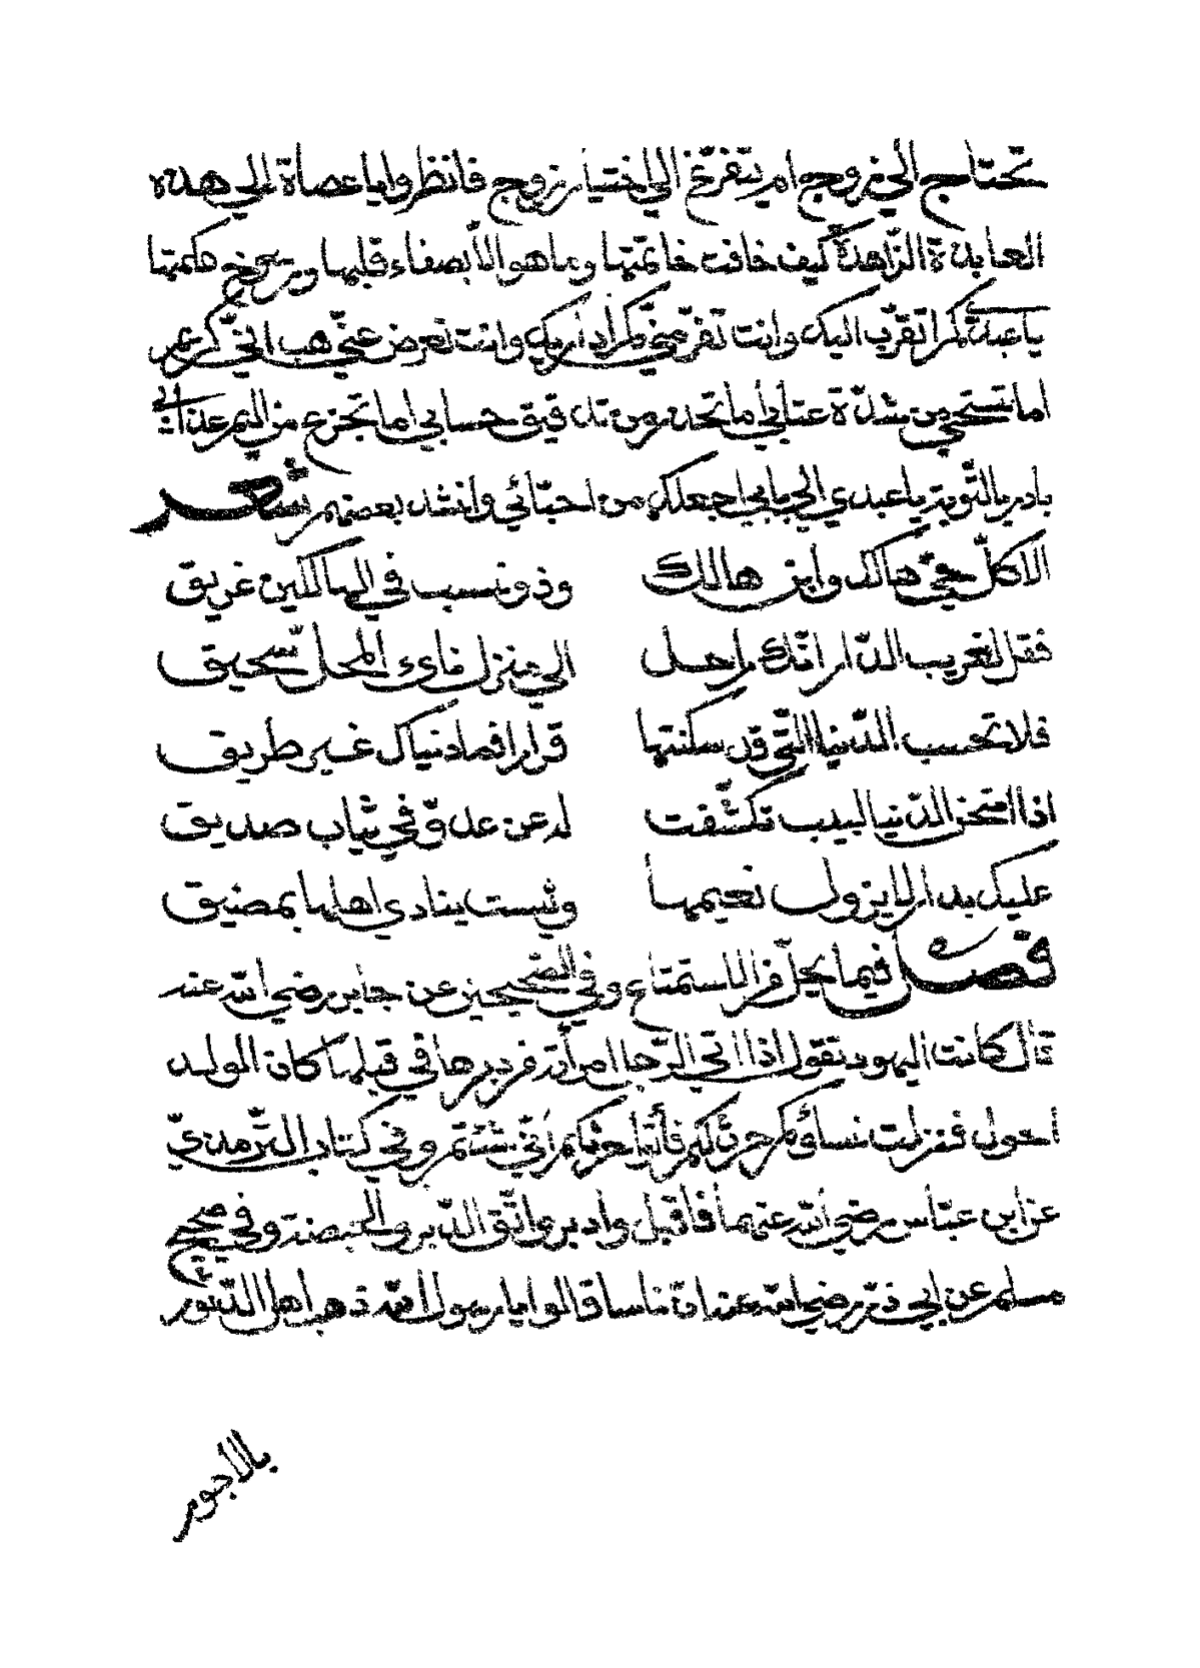 تحتاج الي زوج ام يتفرّغ الي اختيار زوج فانظروا يا عصاة الي هذه
العابدة الزّاهدة كيف خافت خاتمتها وما هو الّا بصفاء قلبها ورسوخ حكمتها
يا عبدي كم اتقرّب اليك وانت تفرّ منّي كم أداريك وانت تعرض عنّي هب انّي كريم
اما تستحي من شدّة عتابي أما تحذر من تدقيق حسابي اما تجزع من اليم عذابي
بادر بالتّوبة يا عبدي الي بابي اجعلك من احبّائي وانشد بعضهم شعر
الا كلّ حيّ هالك وابن هالك    وذو نسب في الهالكين غريق
فقل لغريب الدّار انّك راحل    الي منزل نائ المحلّ سحيق
فلا تحسب الدّنيا الّتي قد سكنتها    قرارا فما دنياك غير طريق
اذا امتحن الدّنيا لبيب تكشّفت    له عن عدوّ في ثياب صديق
عليك بدار لا يزول نعيمها    وليست ينادي اهلها بمضيق
فصل فيما يحلّ من الاستمتاع وفي الصّحيحين عن جابر رضي الله عنه
قال كانت اليهود تقول اذا اتي الرّجل امرأته من دبرها في قبلها كان الولد
احول فنزلت نساؤكم حرث لكم فأتوا حرثكم أنّي شئتم وفي كتاب التّرمذيّ
عن ابن عبّاس رضي الله عنهما فأقبل وأدبر واتّق الدّبر والحيضة وفي صحيح
مسلم عن ابي ذرّ رضي الله عنه انّ ناسا قالوا يا رسول الله ذهب اهل الدّثور
بالأجور